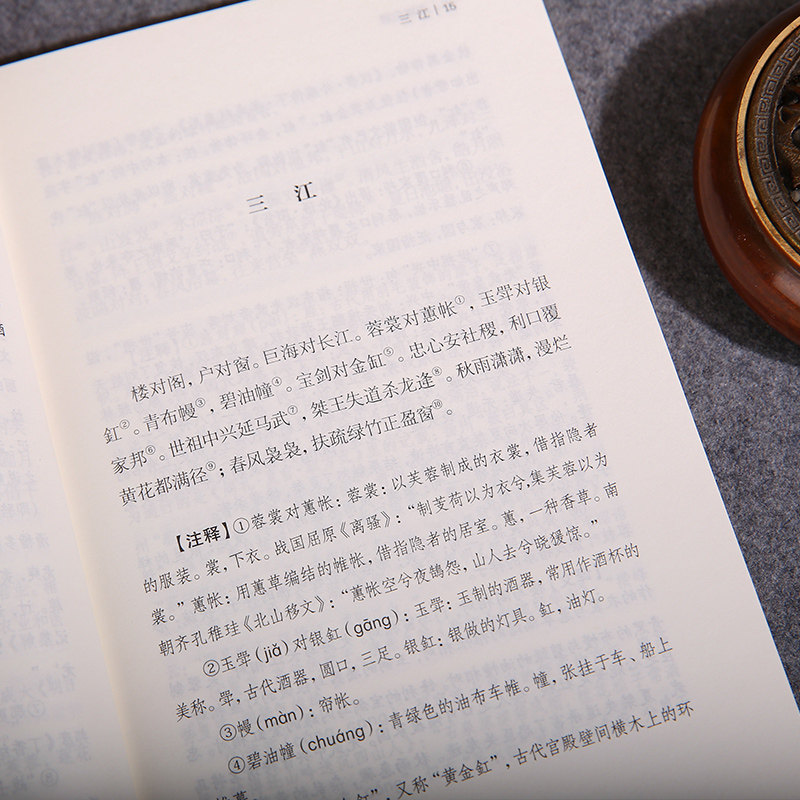 三 江 | 15
三 江
楼对阁，户对窗。巨海对长江。蓉裳对蕙帐①，玉斝对银
釭②。青布幔③，碧油幢④。宝剑对金缸⑤。忠心安社稷，利口覆
家邦⑥。世祖中兴延马武⑦，桀王失道杀龙逄⑧。秋雨潇潇，漫烂
黄花都满径⑨；春风袅袅，扶疏绿竹正盈窗⑩。
【注释】①蓉裳对蕙帐：蓉裳：以芙蓉制成的衣裳，借指隐者
的服装。裳，下衣。战国屈原《离骚》：“制芰荷以为衣兮，集芙蓉以为
裳。”蕙帐：用蕙草编结的帷帐，借指隐者的居室。蕙，一种香草。南
朝齐孔稚珪《北山移文》：“蕙帐空兮夜鹄怨，山人去兮晓猨惊。”
②玉斝（jiǎ）对银釭（gāng）：玉斝：玉制的酒器，常用作酒杯的
美称。斝，古代酒器，圆口，三足。银釭：银做的灯具。釭，油灯。
③幔（màn）：帘帐。
④碧油幢（chuáng）：青绿色的油布车帷。幢，张挂于车、船上
”，又称“黄金釭”，古代宫殿壁间横木上的环